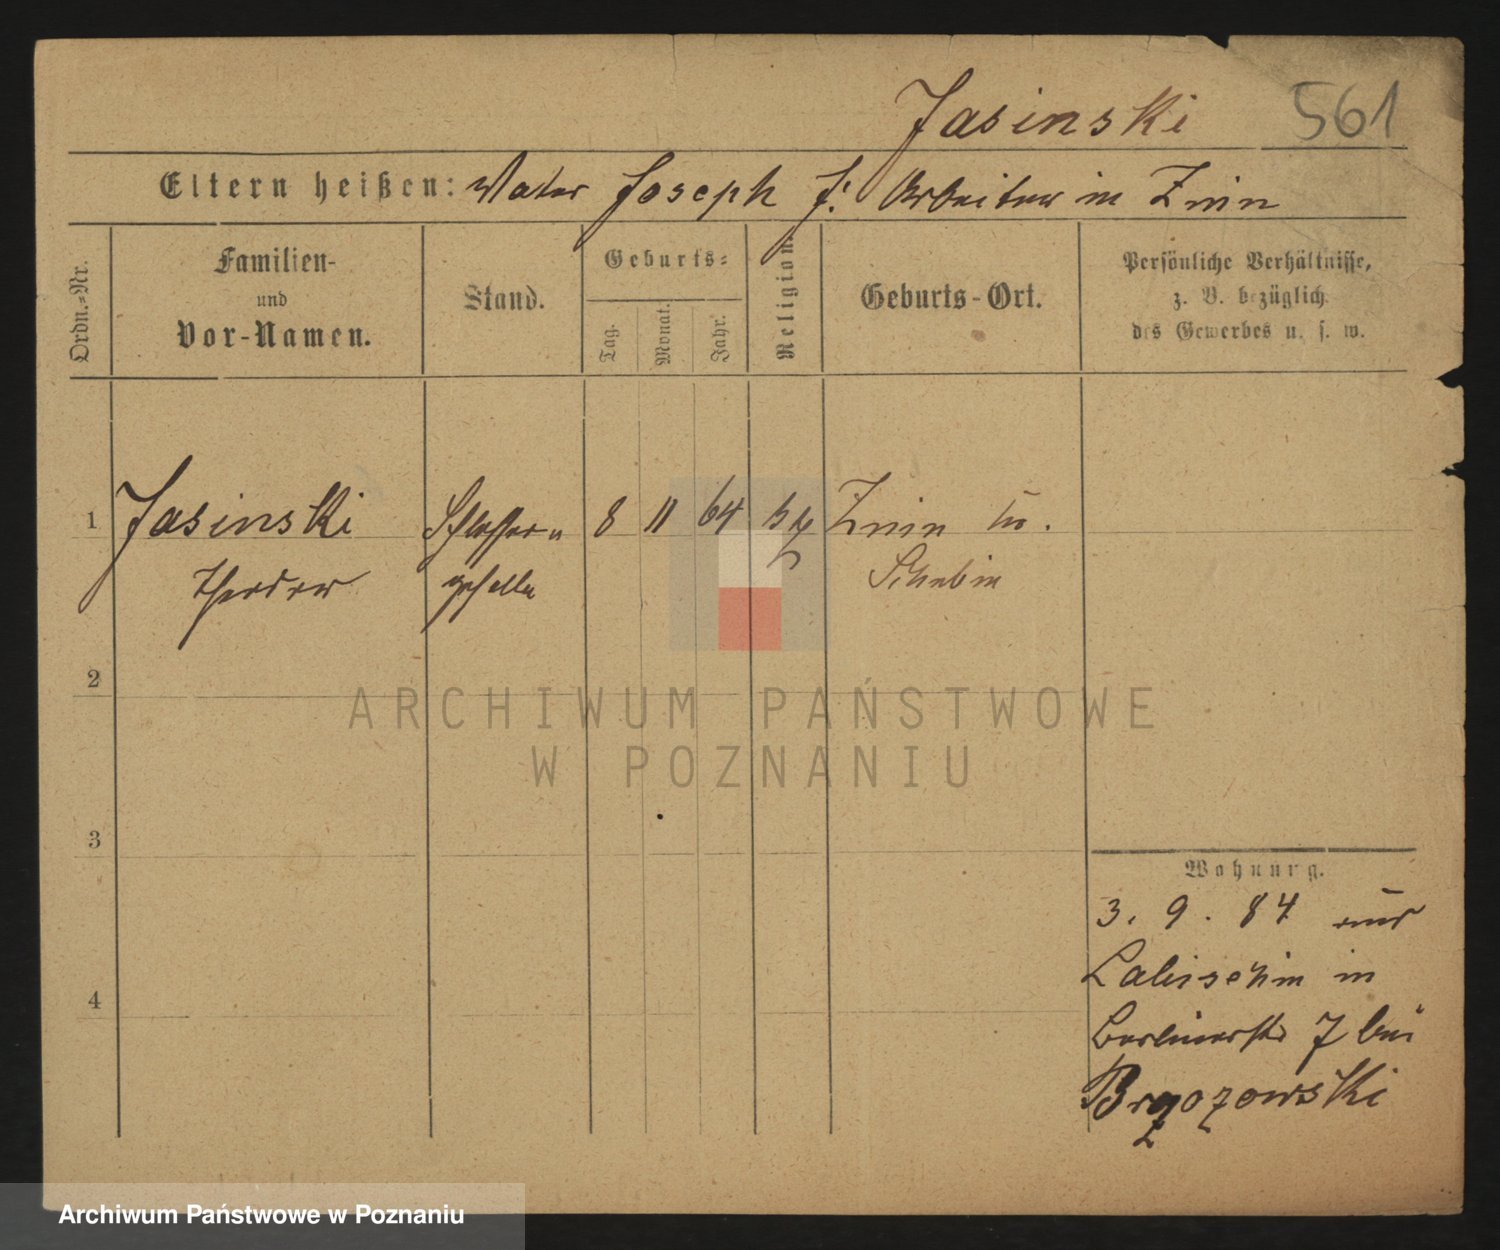 Jasinski 561
Eltern heißen: Vater Joseph J. Arbeiter in Znin
Ordn.-Nr.
Familien-
und
Vor-Namen.
Stand.
Geburts-
Tag.
Monat.
Jahr.
Religion.
Geburts-Ort.
Persönliche Verhältnisse,
z. B. bezüglich
des Gewerbes u. s. w.
1 Jasinski Schlosser 8 11 64 Znin
Theodor geselle Schubin
2
3
4
Wohnung.
3. 9. 84 aus
Labischin in
Berlinerstr 7 bei
Brzozowski
ARCHIWUM PAŃSTWOWE
W POZNANIU
Archiwum Państwowe w Poznaniu